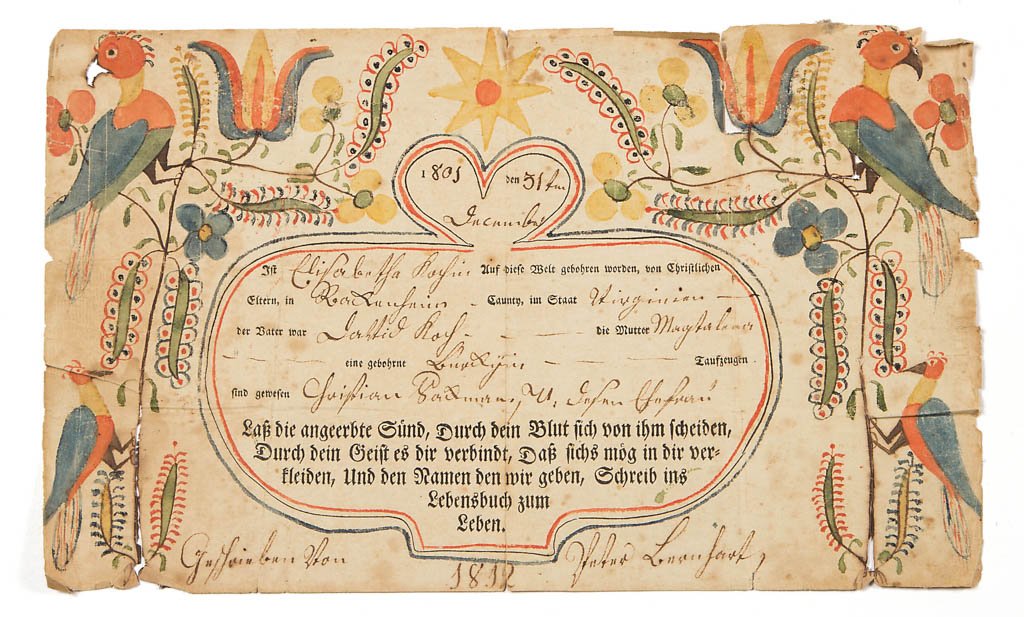 1801 den 31ten
December
Ist Elisabetha Kochin Auf diese Welt gebohren worden, von Christlichen
Eltern, in Rakenheim – Caunty, im Staat Virginien —
der Vater war Dattid Koch — — die Mutter Magtalena
— — eine gebohrne — — Taufzeugen
sind gewesen Christian U. desen Ehefrau
Laß die angeerbte Sünd, Durch dein Blut sich von ihm scheiden,
Durch dein Geist es dir verbindt, Daß sichs mög in dir ver-
kleiden, Und den Namen den wir geben, Schreib ins
Lebensbuch zum
Leben.
Geschrieben Von 1812 Peter Bernhart